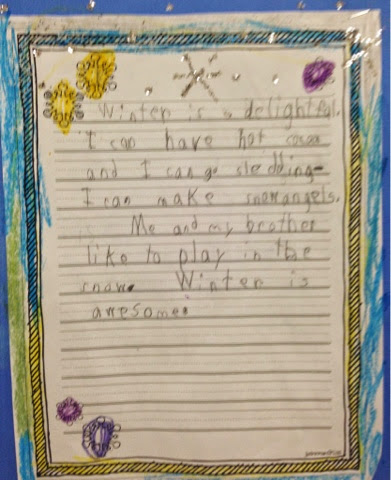 Winter is delightful.
I can have hot cocoa
and I can go sledding.
I can make snowangels.
Me and my brother
like to play in the
snow. Winter is
awesome.